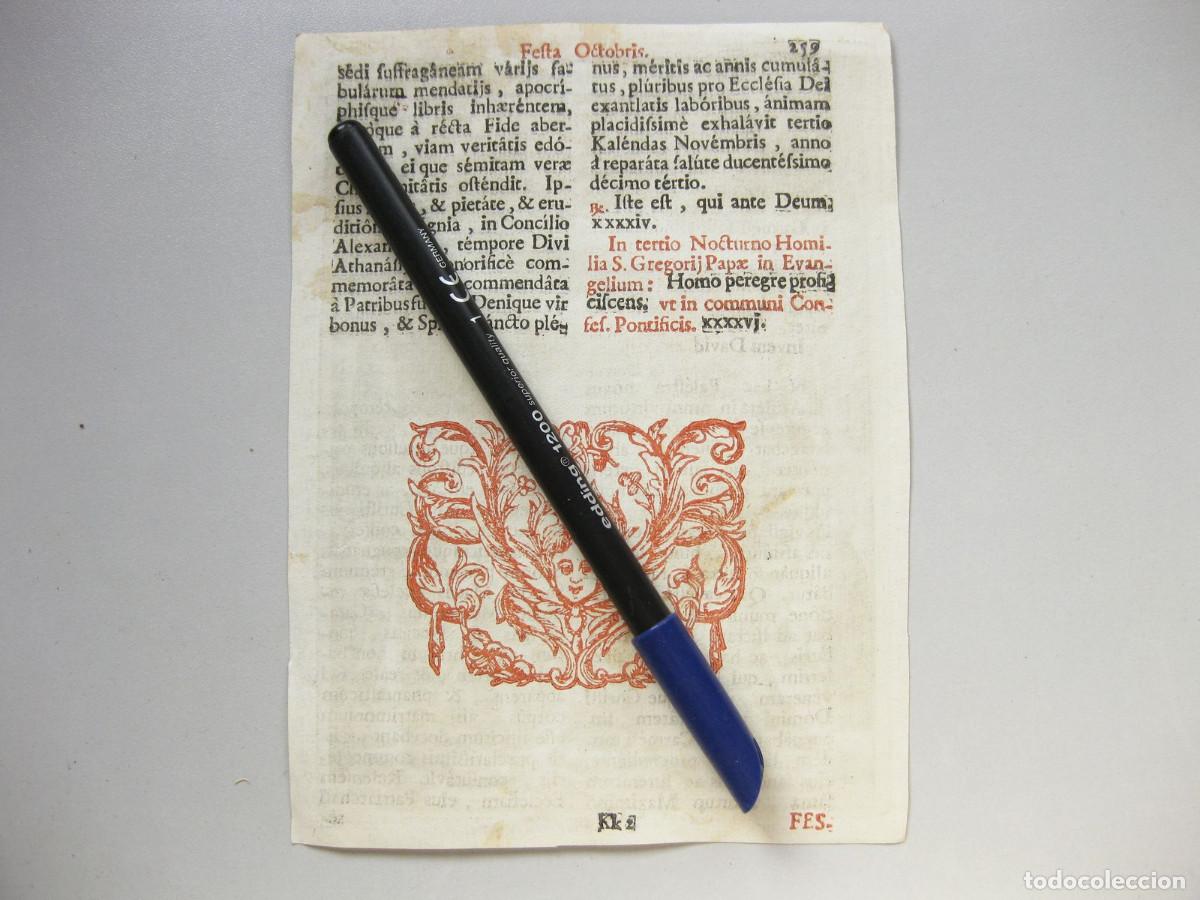 Festa Octobris. 259
sédi suffragâneam várijs fa-
bulárum mendatijs, apocri-
phisque libris inhæréntem,
óque à récta Fide aber-
m, viam veritâtis edó-
ei que sémitam veræ
Ch nitâtis osténdit. Ip-
sius , & pietáte, & eru-
ditión gnia, in Concílio
Alexan , témpore Divi
Athanás onorificè com-
memoráta commendâta
à Patribus fu Denique vir
bonus, & Sp áncto plé-
nus, méritis ac annis cumulá-
tus, plúribus pro Ecclésia Dei
exantlatis labóribus, ánimam
placidissimè exhalávit tertio
Kaléndas Novémbris, anno
á reparáta salúte ducentéssimo
décimo tértio.
℞. Iste est, qui ante Deum
xxxxiv.
In tertio Nocturno Homi-
lia S. Gregorij Papæ in Evan-
gelium: Homo peregre profi-
ciscens, vt in communi Con-
fes. Pontificis. xxxxvj.
edding® 1200 superior quality 1 CE GERMANY
Kk 2 FES-
todocoleccion